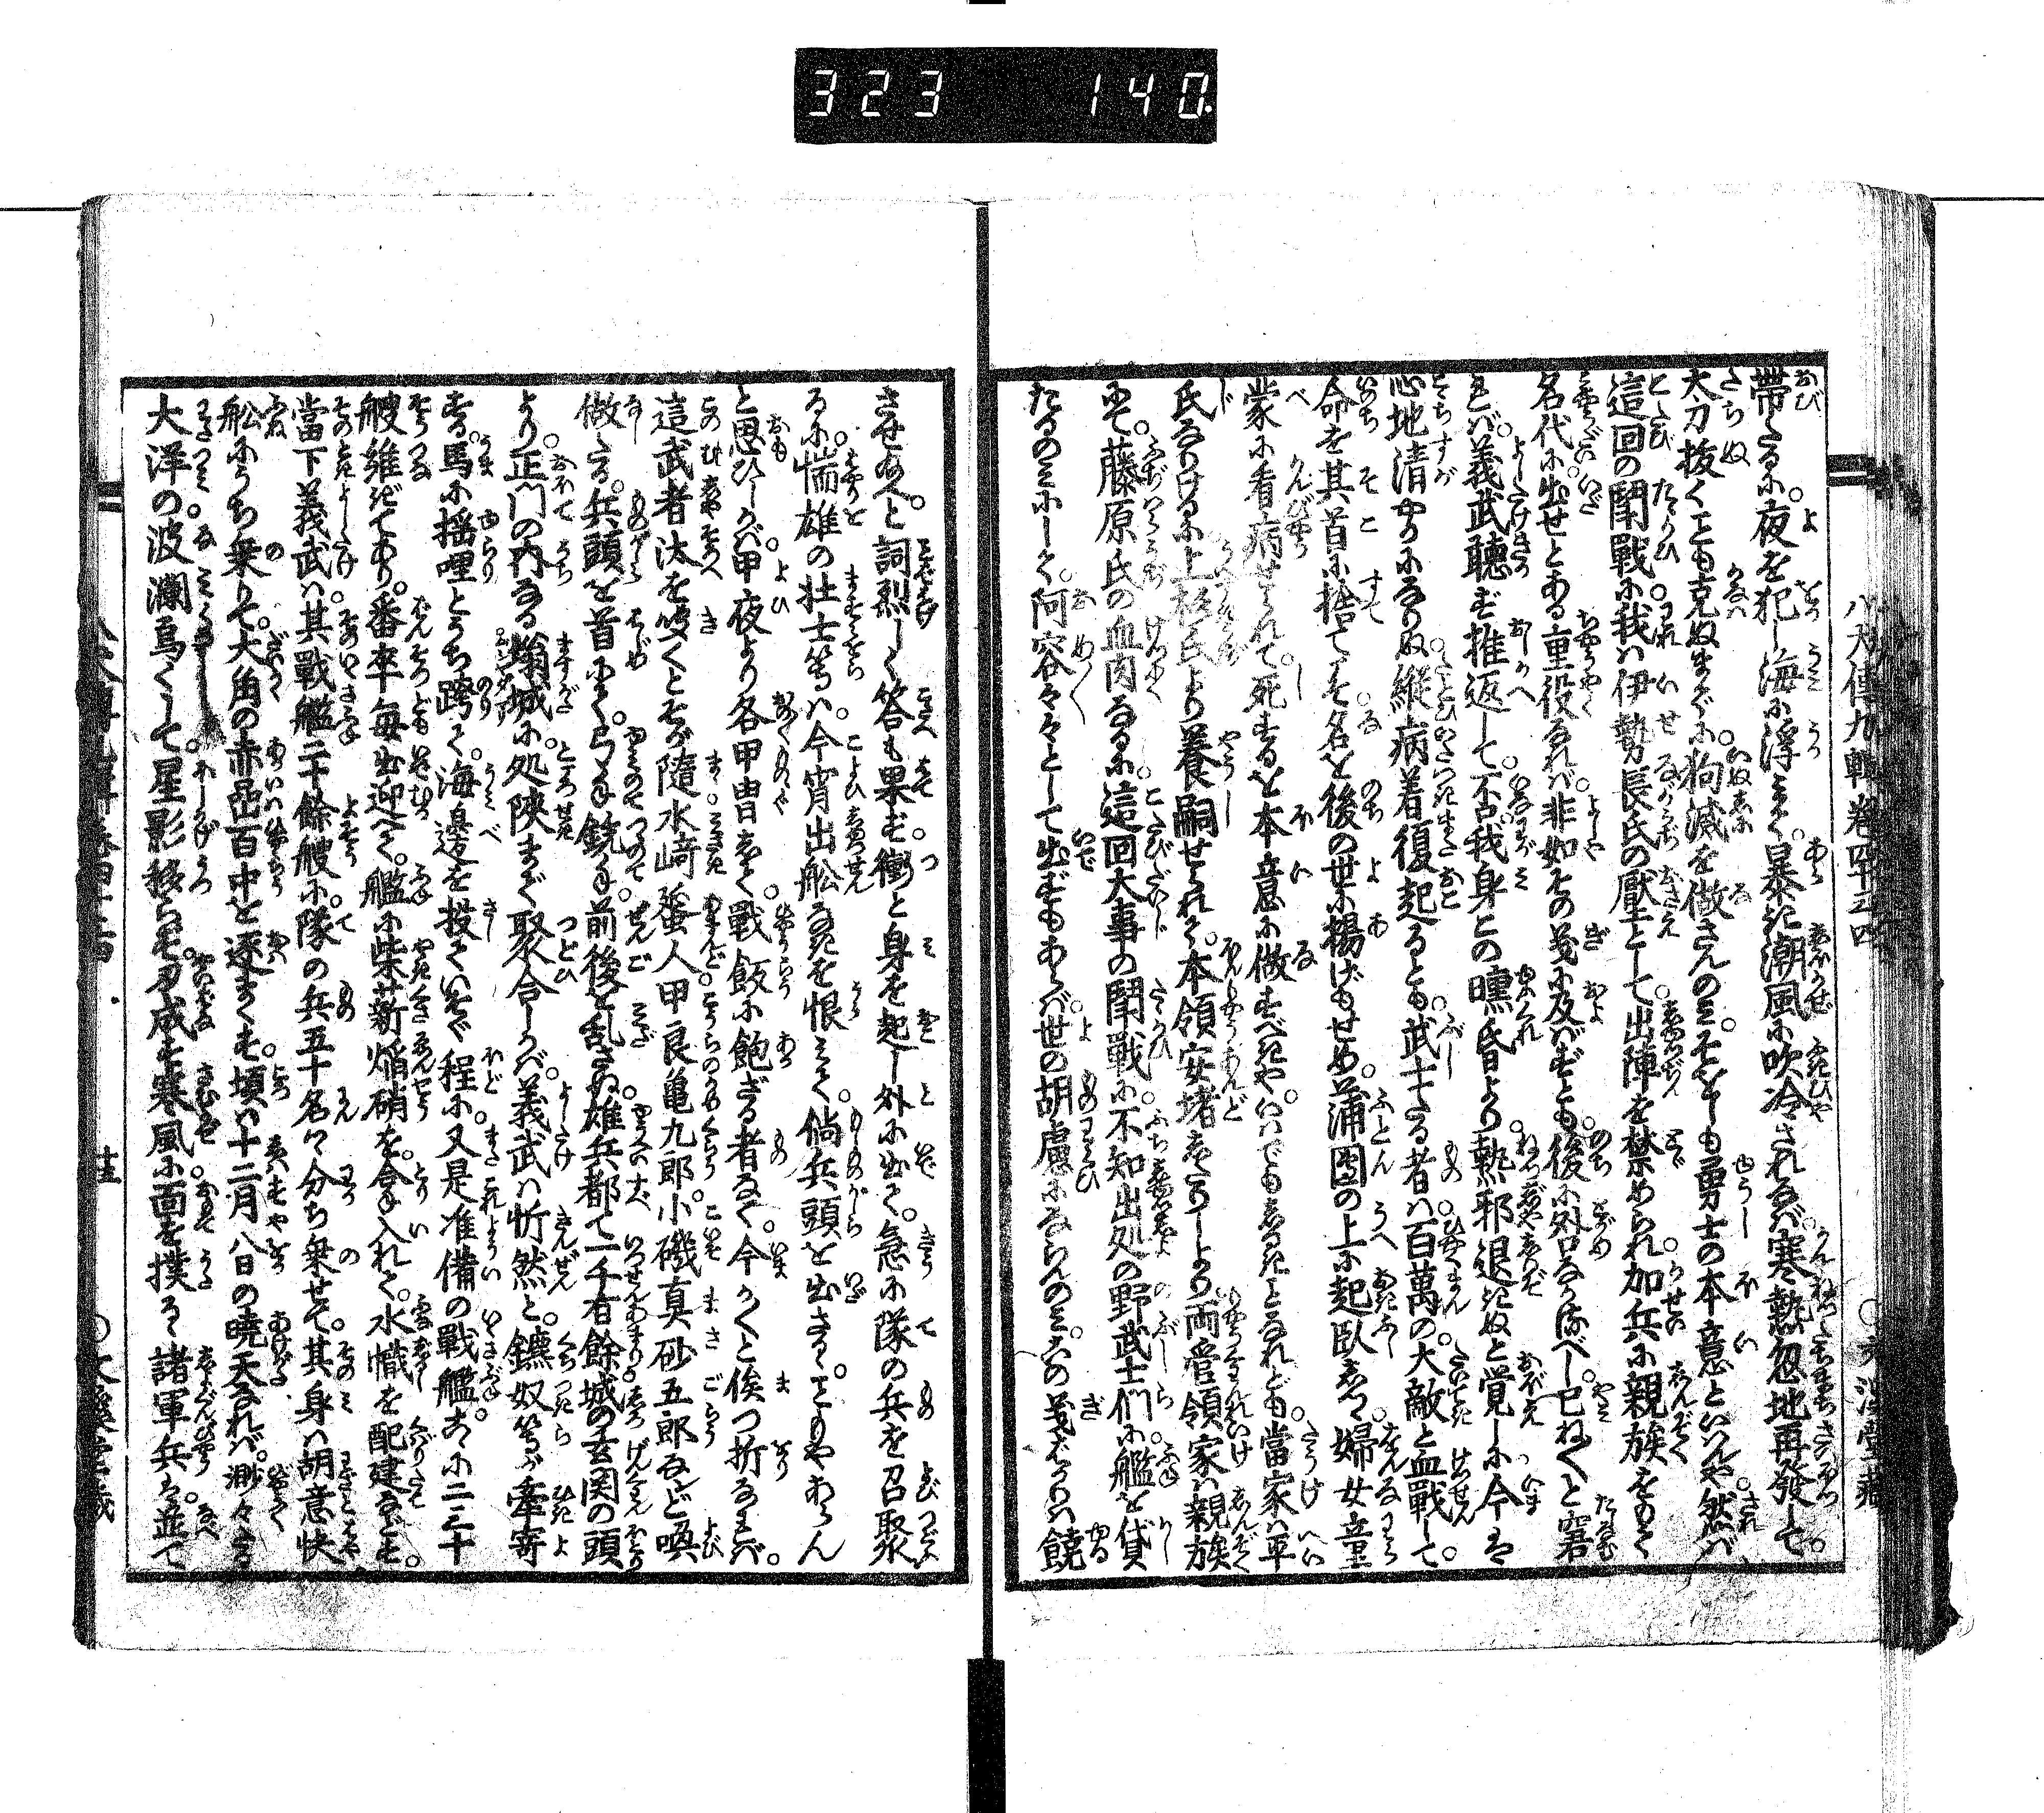 323 140
八犬傳九輯卷四十四
帶たるに。夜を犯し海に浮みて。暴き潮風に吹冷されなば。寒熱忽地再發して。
大刀拔くことも克ぬまでに。狗滅を做さんのみ。そをしも勇士の本意といはんや。然ば
這回の鬪戰に。我は伊勢長氏の壓として。出陣を禁められ。加兵に親族をもて
名代に。出せとある重役なれば。非如その義に及ばずとも。後に外なかるべし。已ねくと窘
れば。義武聽ず推返して。不。我身この曛昏より。熱邪退きぬと覺しに。今は
心地清やかになりぬ。縱病着復起るとも。武士たる者は。百萬の。大敵と血戰して。
命を其首に捨てこそ。名を後の世に揚げもせめ。蒲團の上に起臥しつ。婦女童
蒙に看病せられて。死するを本意に做すべきや。いはでもしるきことなれども。當家は平
氏なりけるに。上杉氏より養嗣せられて。本領安堵したりしより。兩管領家は親族
にて。藤原氏の血肉なるに。這回大事の鬪戰に。不知出処の野武士们に。艦を貸
たるのみにして。阿容々々として出ずもあらば。世の胡慮にならんのみ。この義ばかりは饒
させ給へ。と詞烈しく答も果ず。衝と身を起し外に出て。急に隊の兵を召聚
るに。惴雄の壯士等は。今宵出舩なきを恨みて。倘兵頭を出さるゝ。ことやあらん
と思ひしかば。甲夜より各甲冑して。戰飯に飽ざる者なく。今かくと俟つ折なれば。
這武者汰を聞くとそが隨。水﨑蜑人。甲良龜九郎。小磯真砂五郎なンど喚
做たる。兵頭を首にて。弓手銃手。前後を亂さぬ。雄兵都て一千有餘。城の玄関の頭
より。正門の内なる。蓊城に。処陜まで聚合しかば。義武は忻然と。鑣奴等が牽寄
する。馬に搖哩とうち跨て。海邊を投ていそぐ程に。又是准備の戰艦。あふに二三十
艘維ぎてあり。番卒毎出迎へて。艦に柴薪焔硝を。合み入れて。水幟を配建などす。
當下義武は。其戰艦二十餘艘に。隊の兵五十名づゝ分ち乘せて。其身は胡意快
舩にうち乘りて。大角の赤嵒百中を逐まくす。頃は十二月八日の曉天なれば。渺々たる
大洋の。波瀾高くして星影移らず。刃成す寒風に面を撲るゝ。諸軍兵は並て